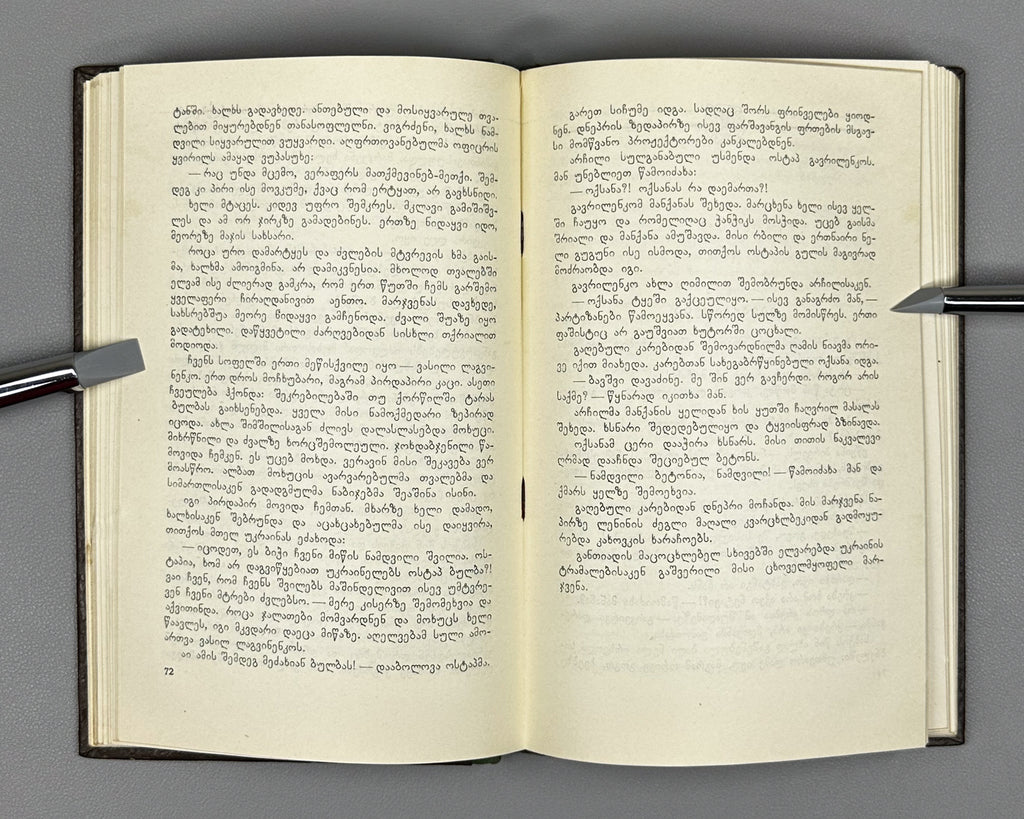 ტანში. ხალხს გადავხედე. ანთებული და მოსიყვარულე თვა-
ლებით მიყურებდნენ თანასოფლელნი. ვიგრძენი, ხალხს ნამ-
დვილი სიყვარულით ვუყვარდი. აღფრთოვანებულმა ოფიცრის
ყვირილს ამაყად ვუპასუხე:
— რაც უნდა მცემო, ვერაფერს მათქმევინებ-მეთქი. შემ-
დეგ კი პირი ისე მოვკუმე, ქვაც რომ ერტყათ, არ გავხსნიდი.
ხელი მტაცეს. კიდევ უფრო შემკრეს. მკლავი გამიშიშვ-
ლეს და ამ ორ ჯირკზე გამადებინეს. ერთზე ნიდაყვი იდო,
მეორეზე მაჯის სახსარი.
როცა ურო დამარტყეს და ძვლების მტვრევის ხმა გაის-
მა, ხალხმა ამოიგმინა. არ დამიკვნესია. მხოლოდ თვალებში
ელვამ ისე ძლიერად გამკრა, რომ ერთ წუთში ჩემს გარშემო
ყველაფერი ჩირაღდანივით აენთო. მარჯვენას დავხედე,
სახსრებშუა მეორე ნიდაყვი გამჩენოდა. ძვალი შუაზე იყო
გადატეხილი. დაწყვეტილი ძარღვებიდან სისხლი თქრიალით
მოდიოდა.
ჩვენს სოფელში ერთი მეწისქვილე იყო — ვასილი ლაგვი-
ნენკო. ერთ დროს მოჩხუბარი, მაგრამ პირდაპირი კაცი. ასეთი
ჩვეულება ჰქონდა: შეკრებილებაში თუ ქორწილში ტარას
ბულბას გაიხსენებდა. ყველა მისი ნამოქმედარი ზეპირად
იცოდა. ახლა შიმშილისაგან ძლივს დალასლასებდა მოხუცი.
მიხრწნილი და ძვალზე ხორცშემოლეული. ჯოხდაბჯენილი წა-
მოვიდა ჩემკენ. ეს უცებ მოხდა. ვერავინ მისი შეკავება ვერ
მოასწრო. ალბათ მოხუცის ავარვარებულმა თვალებმა და
სიმართლისაკენ გადადგმულმა ნაბიჯებმა შეაშინა ისინი.
იგი პირდაპირ მოვიდა ჩემთან. მხარზე ხელი დამადო,
ხალხისაკენ შებრუნდა და აცახცახებულმა ისე დაიყვირა,
თითქოს მთელ უკრაინას ეძახოდა:
— იცოდეთ, ეს ბიჭი ჩვენი მიწის ნამდვილი შვილია. ოს-
ტაპია, ხომ არ დაგვიწყებიათ უკრაინელებს ოსტაპ ბულბა?!
ვაი ჩვენ, რომ ჩვენს შვილებს მაშინდელივით ისევ უმტვრე-
ვენ ჩვენი მტრები ძვლებსო. — მერე კისერზე შემომეხვია და
აქვითინდა. როცა ჯალათები მომვარდნენ და მოხუცს ხელი
წაავლეს, იგი მკვდარი დაეცა მიწაზე. აღელვებამ სული ამო-
ართვა ვასილ ლაგვინენკოს.
აი ამის შემდეგ მეძახიან ბულბას! — დააბოლოვა ოსტაპმა.
72
გარეთ სიჩუმე იდგა. სადღაც შორს ფრინველები ყიოდ-
ნენ. დნეპრის ზედაპირზე ისევ ფარშავანგის ფრთების მსგავ-
სი მომწვანო პროჟექტორები კანკალებდნენ.
არჩილი სულგანაბული უსმენდა ოსტაპ გავრილენკოს.
მან უნებლიეთ წამოიძახა:
— ოქსანა?! ოქსანას რა დაემართა?!
გავრილენკომ მანქანას შეხედა. მარცხენა ხელი ისევ ყელ-
ში ჩაუყო და რომელიღაც ჭანჭიკს მოსჭიდა. უცებ გაისმა
შრიალი და მანქანა ამუშავდა. მისი რბილი და ერთნაირი ნე-
ლი გუგუნი ისე ისმოდა, თითქოს ოსტაპის გულის მაგივრად
მოძრაობდა იგი.
გავრილენკო ახლა ღიმილით შემობრუნდა არჩილისაკენ.
— ოქსანა ტყეში გაქცეულიყო. — ისევ განაგრძო მან, —
პარტიზანები წამოეყვანა. სწორედ სულზე მომისწრეს. ერთი
ფაშისტიც არ გაუშვიათ ხუტორში ცოცხალი.
გაღებული კარებიდან შემოვარდნილმა ღამის ნიავმა ორი-
ვე იქით მიახედა. კარებთან სახეგაბრწყინებული ოქსანა იდგა.
— ბავშვი დავაძინე. მე შინ ვერ გავჩერდი. როგორ არის
საქმე? — წყნარად იკითხა მან.
არჩილმა მანქანის ყელიდან ხის ყუთში ჩაღვრილ მასალას
შეხედა. ხსნარი შედედებულიყო და ტყვიისფრად ბზინავდა.
ოქსანამ ცერი დააჭირა ხსნარს. მისი თითის ნაკვალევი
ღრმად დააჩნდა შეციებულ ბეტონს.
— ნამდვილი ბეტონია, ნამდვილი! — წამოიძახა მან და
ქმარს ყელზე შემოეხვია.
გაღებული კარებიდან დნეპრი მოჩანდა. მის მარჯვენა ნა-
პირზე ლენინის ძეგლი მაღალი კვარცხლბეკიდან გადმოყუ-
რებდა კახოვკის ხარაჩოებს.
განთიადის მაცოცხლებელ სხივებში ელვარებდა უკრაინის
ტრამალებისაკენ გაშვერილი მისი ცხოველმყოფელი მარ-
ჯვენა.